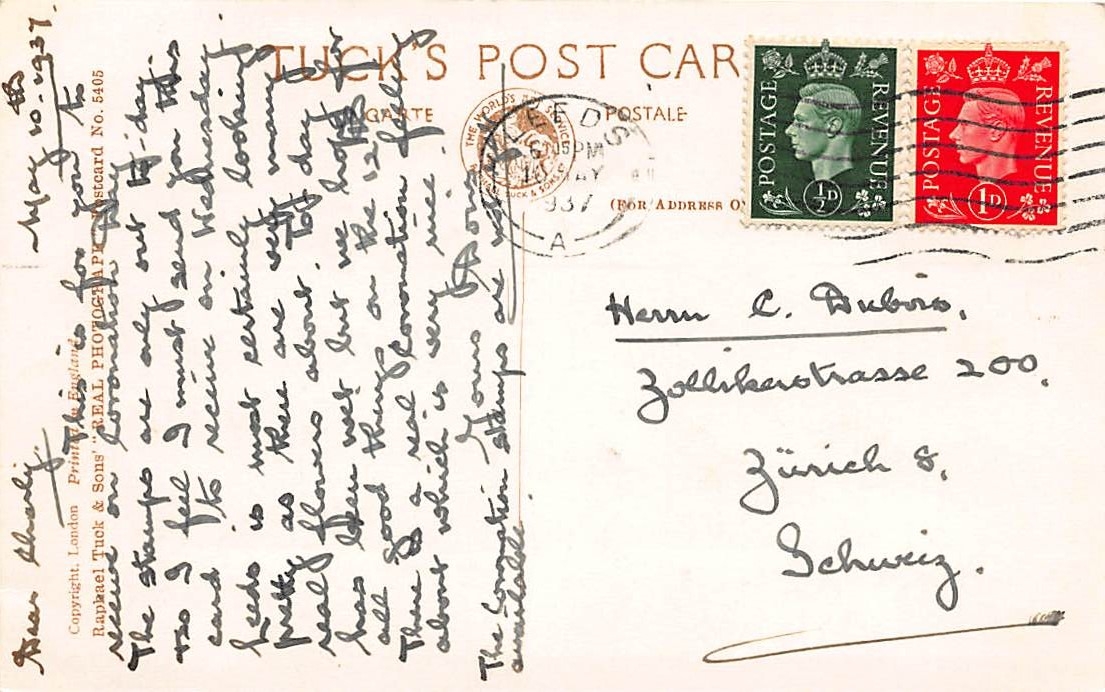 TUCK'S POST CAR
CARTE POSTALE
(FOR ADDRESS O
THE WORLD'S
TUCK & SONS
LEEDS
PM
10 MAY
1937
A
POSTAGE REVENUE
½D
POSTAGE REVENUE
1D
May 10th 1937.
Dear Charly.
This is for you to
receive on Coronation Day
The stamps are only out to-day.
so I feel I must send you this
card to receive on Wednesday.
Leeds is most certainly looking
pretty as there are very many
real flowers about. To-day it
has been wet but we hope for
all good things on the 12th.
There is a real Coronation feeling
about which is very nice.
Yours
The Coronation stamps are not
available.
Copyright, London Printed in England
Raphael Tuck & Sons' "REAL PHOTOGRAPH" Postcard No. 5405
Herrn C. Dubois.
Zollikerstrasse 200.
Zürich 8.
Schweiz.